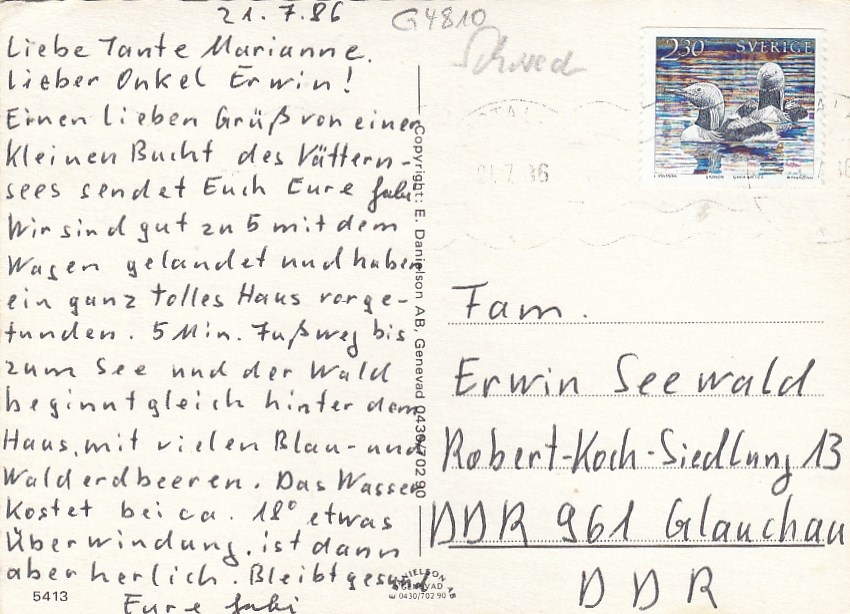 21.7.86
G4810
Schwed
Liebe Tante Marianne.
Lieber Onkel Erwin!
Einen lieben Gruß von einer
kleinen Bucht des Vättern-
sees sendet Euch Eure Gabi
Wir sind gut zu 5 mit dem
Wagen gelandet und haben
ein ganz tolles Haus vorge-
funden. 5 Min. Fußweg bis
zum See und der Wald
beginnt gleich hinter dem
Haus, mit vielen Blau- und
Walderdbeeren. Das Wasser
kostet bei ca. 18° etwas
Überwindung, ist dann
aber herlich. Bleibt gesund!
Eure Gabi
5413
Copyright: E. Danielson AB, Genevad 0430/702 90
DANIELSON AB
GENEVAD
0430/702 90
230 SVERIGE
21.7.86
Fam.
Erwin Seewald
Robert-Koch-Siedlung 13
DDR 961 Glauchau
DDR